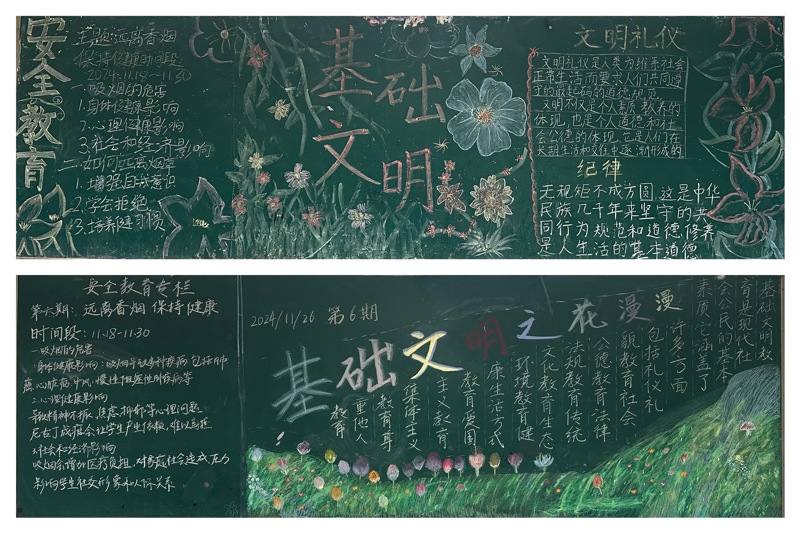 安全教育
主题:远离香烟
保持健康
时间段
2024.11.18-11.30
一.吸烟的危害
1.身体健康影响
2.心理健康影响
3.社会和经济影响
二.如何远离烟草
1.增强自我意识
2.学会拒绝
3.培养健康习惯
基础
文明
文明礼仪
文明礼仪是人类为维系社会
正常生活而要求人们共同遵
守的最起码的道德规范
文明不仅是个人素质、教养的
体现,也是个人道德和社
会公德的体现,它是人们在
长期生活和交往中逐渐形成的
纪律
无规矩不成方圆,这是中华
民族几千年来坚守的共
同行为规范和道德修养
是人生活的基本道德
安全教育专栏
第六期:远离香烟 保持健康
时间段:11.18-11.30
一.吸烟的危害
身体健康影响:吸烟导致多种疾病包括肺
癌、心脏病、中风、慢性阻塞性肺疾病等
2.心理健康影响
导致精神不振、焦虑、抑郁等心理问题
尼古丁成瘾会让学生产生依赖,难以自拔
3.社会和经济影响
吸烟会增加医疗负担,对家庭社会造成压力
影响学生社交形象和人际关系
2024/11/26 第6期
基础文明之花漫漫
基础文明教
育是现代社
会公民的基本
素质,它涵盖了
许多方面
包括礼仪礼
貌教育社会
公德教育法律
法规教育传统
文化教育生态
环境教育健
康生活方式
教育爱国
主义教育
集体主义
教育尊
重他人
教育